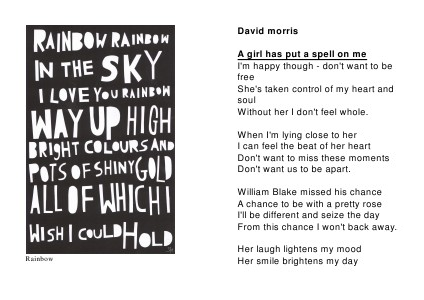 RAINBOW RAINBOW
IN THE SKY
I LOVE YOU RAINBOW
WAY UP HIGH
BRIGHT COLOURS AND
POTS OF SHINY GOLD
ALL OF WHICH I
WISH I COULD HOLD
Rainbow
David morris
A girl has put a spell on me
I'm happy though - don't want to be
free
She's taken control of my heart and
soul
Without her I don't feel whole.
When I'm lying close to her
I can feel the beat of her heart
Don't want to miss these moments
Don't want us to be apart.
William Blake missed his chance
A chance to be with a pretty rose
I'll be different and seize the day
From this chance I won't back away.
Her laugh lightens my mood
Her smile brightens my day